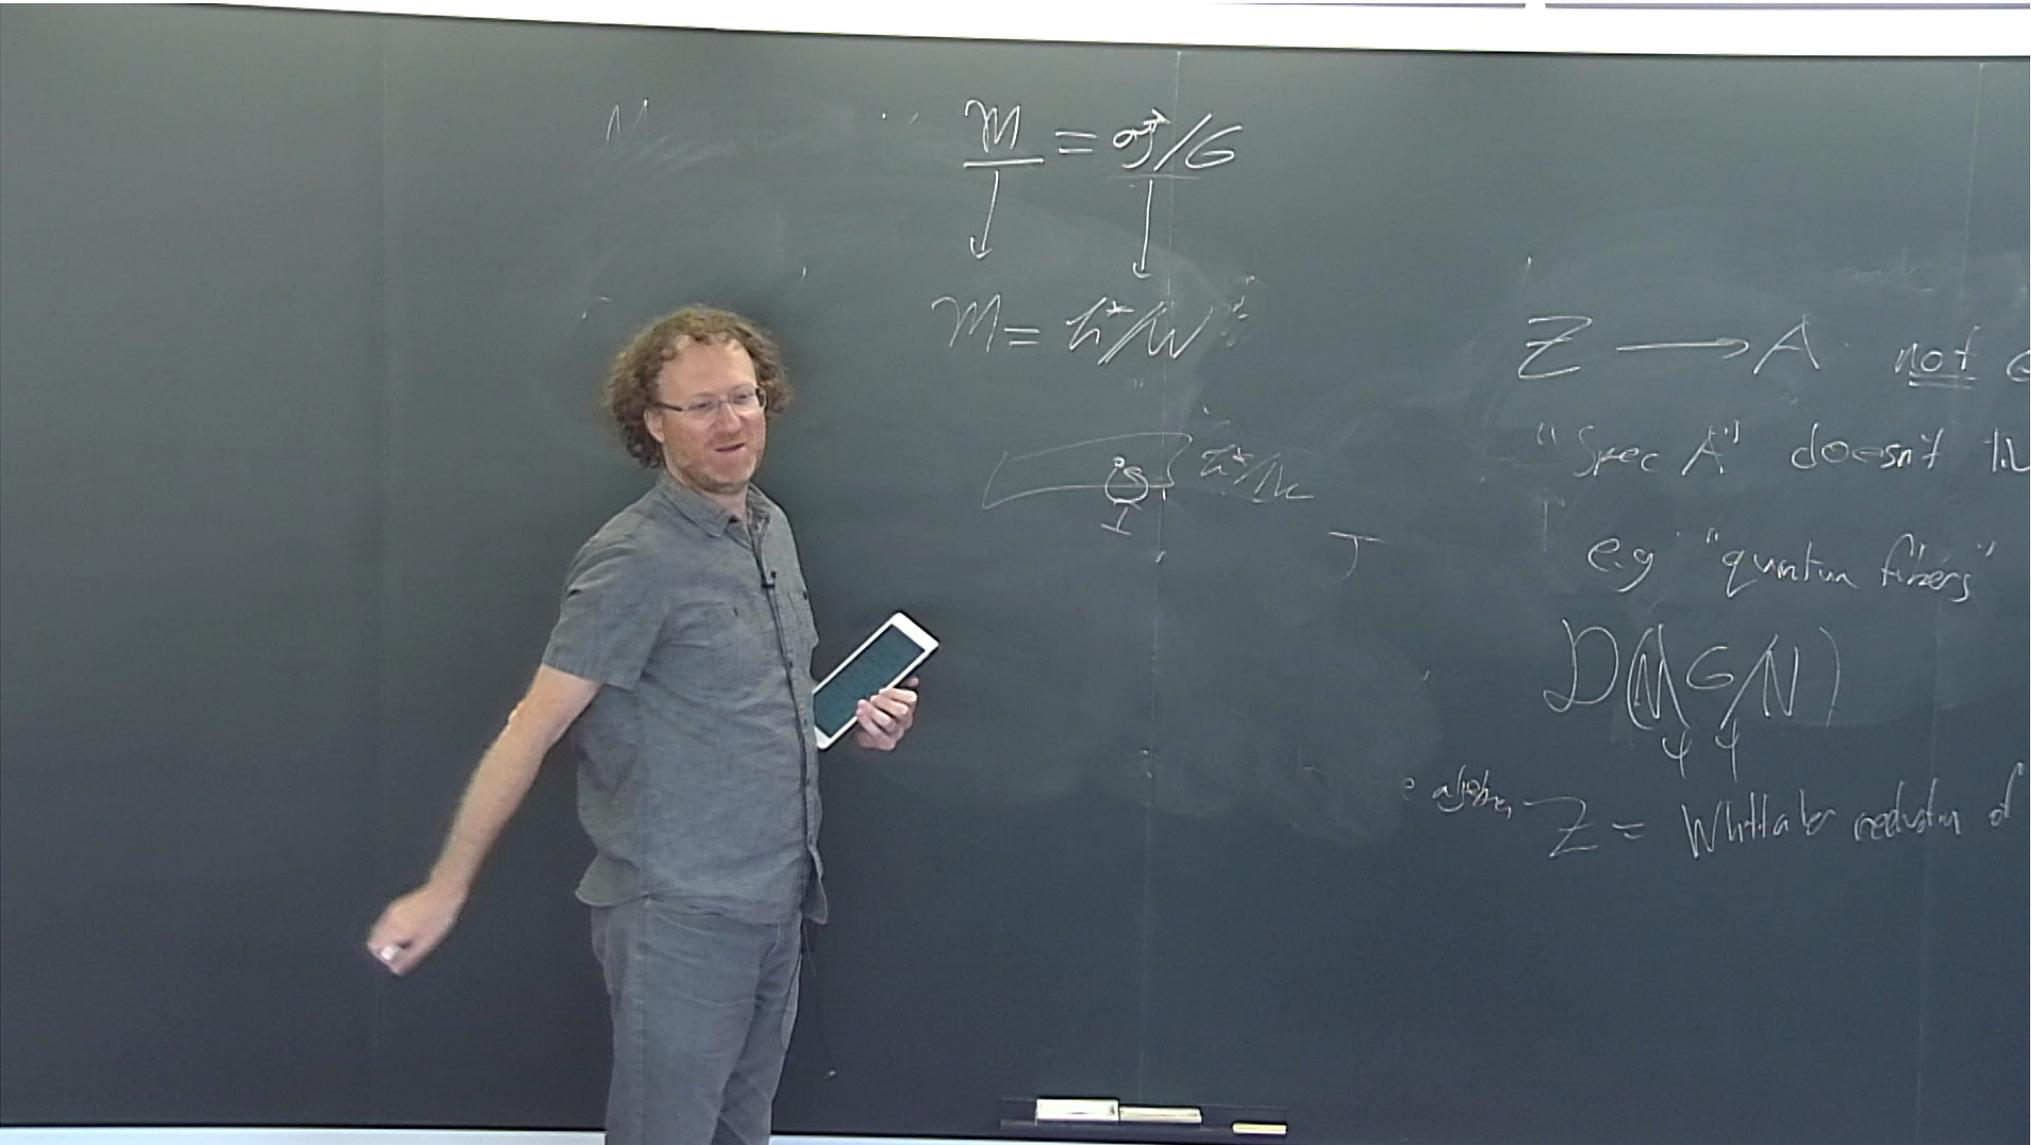 M = g*/G
M = h*/W
h*/W
Z → A not
"Spec A" doesn't
e.g "quantum fibers"
D(N\G/N)
ψ ψ
Z = Whittaker reduction of